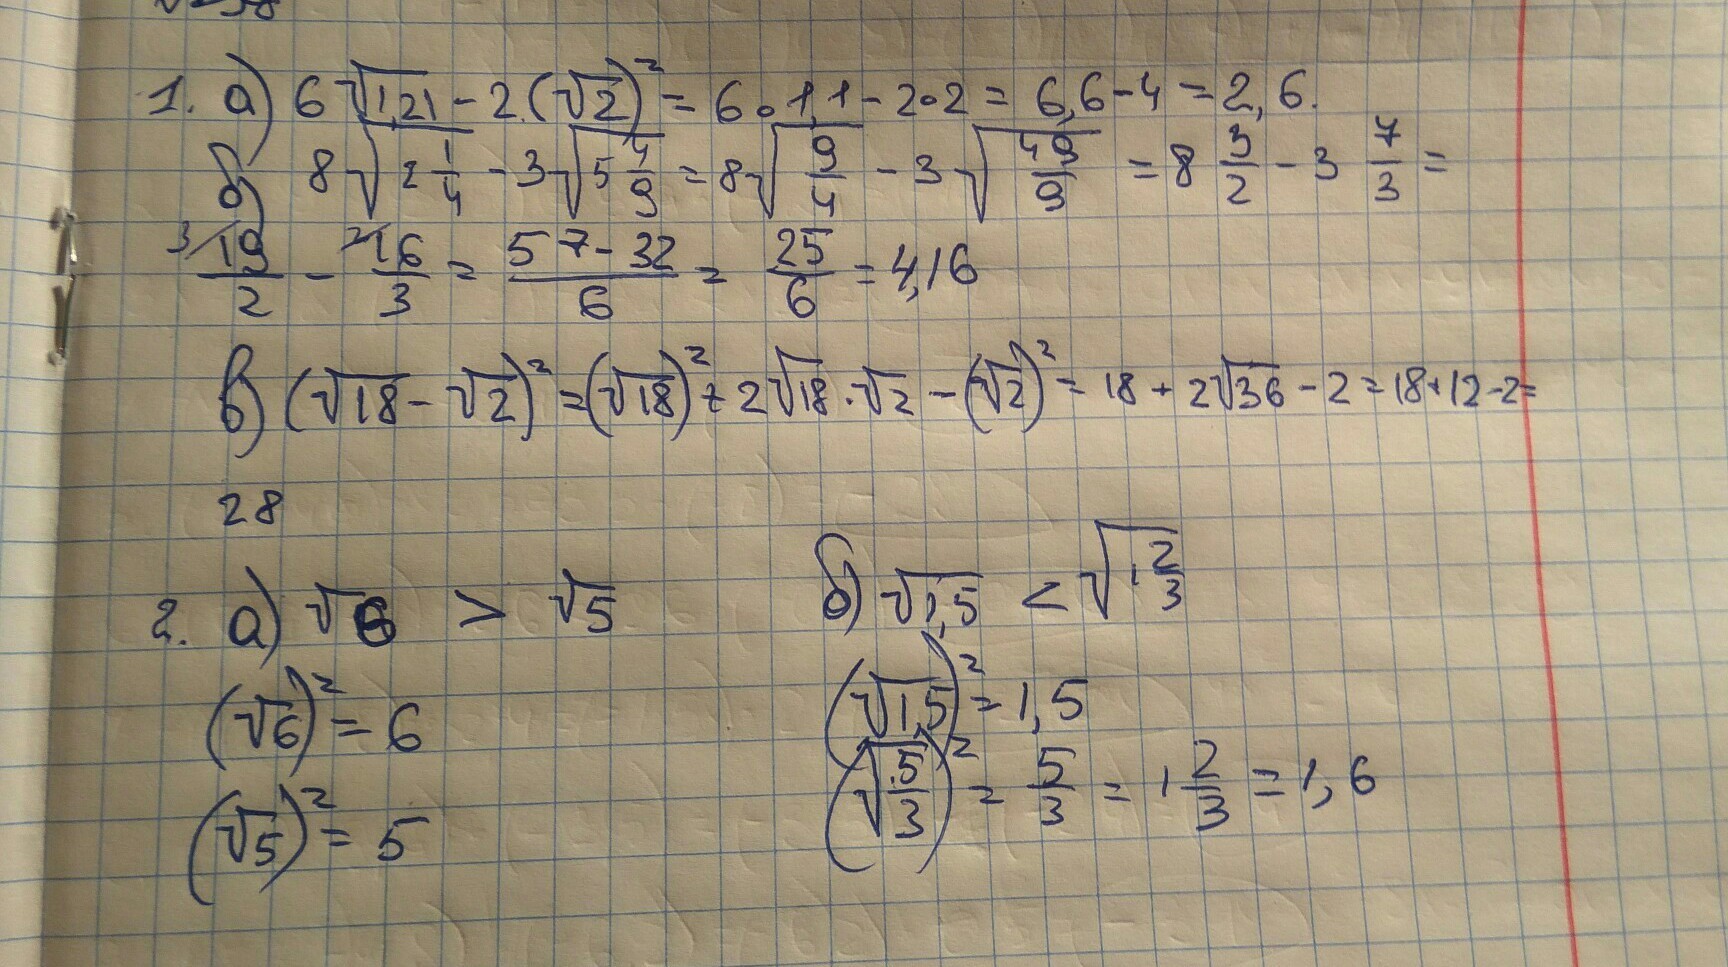 1. а) 6√1,21 - 2.(√2)² = 6∘1,1 - 2∘2 = 6,6 - 4 = 2,6.
б) 8√2 1/4 - 3√5 4/9 = 8√9/4 - 3√49/9 = 8 3/2 - 3 7/3 =
³⁄19/2 - ²⁄16/3 = 57-32/6 = 25/6 = 4,16
в) (√18 - √2)² = (√18)² + 2√18 · √2 - (√2)² = 18 + 2√36 - 2 = 18+12-2=
28
2. а) √6 > √5 б) √1,5 < √1 2/3
(√6)² = 6 (√1,5)² = 1,5
(√5)² = 5 (√5/3)² = 5/3 = 1 2/3 = 1,6